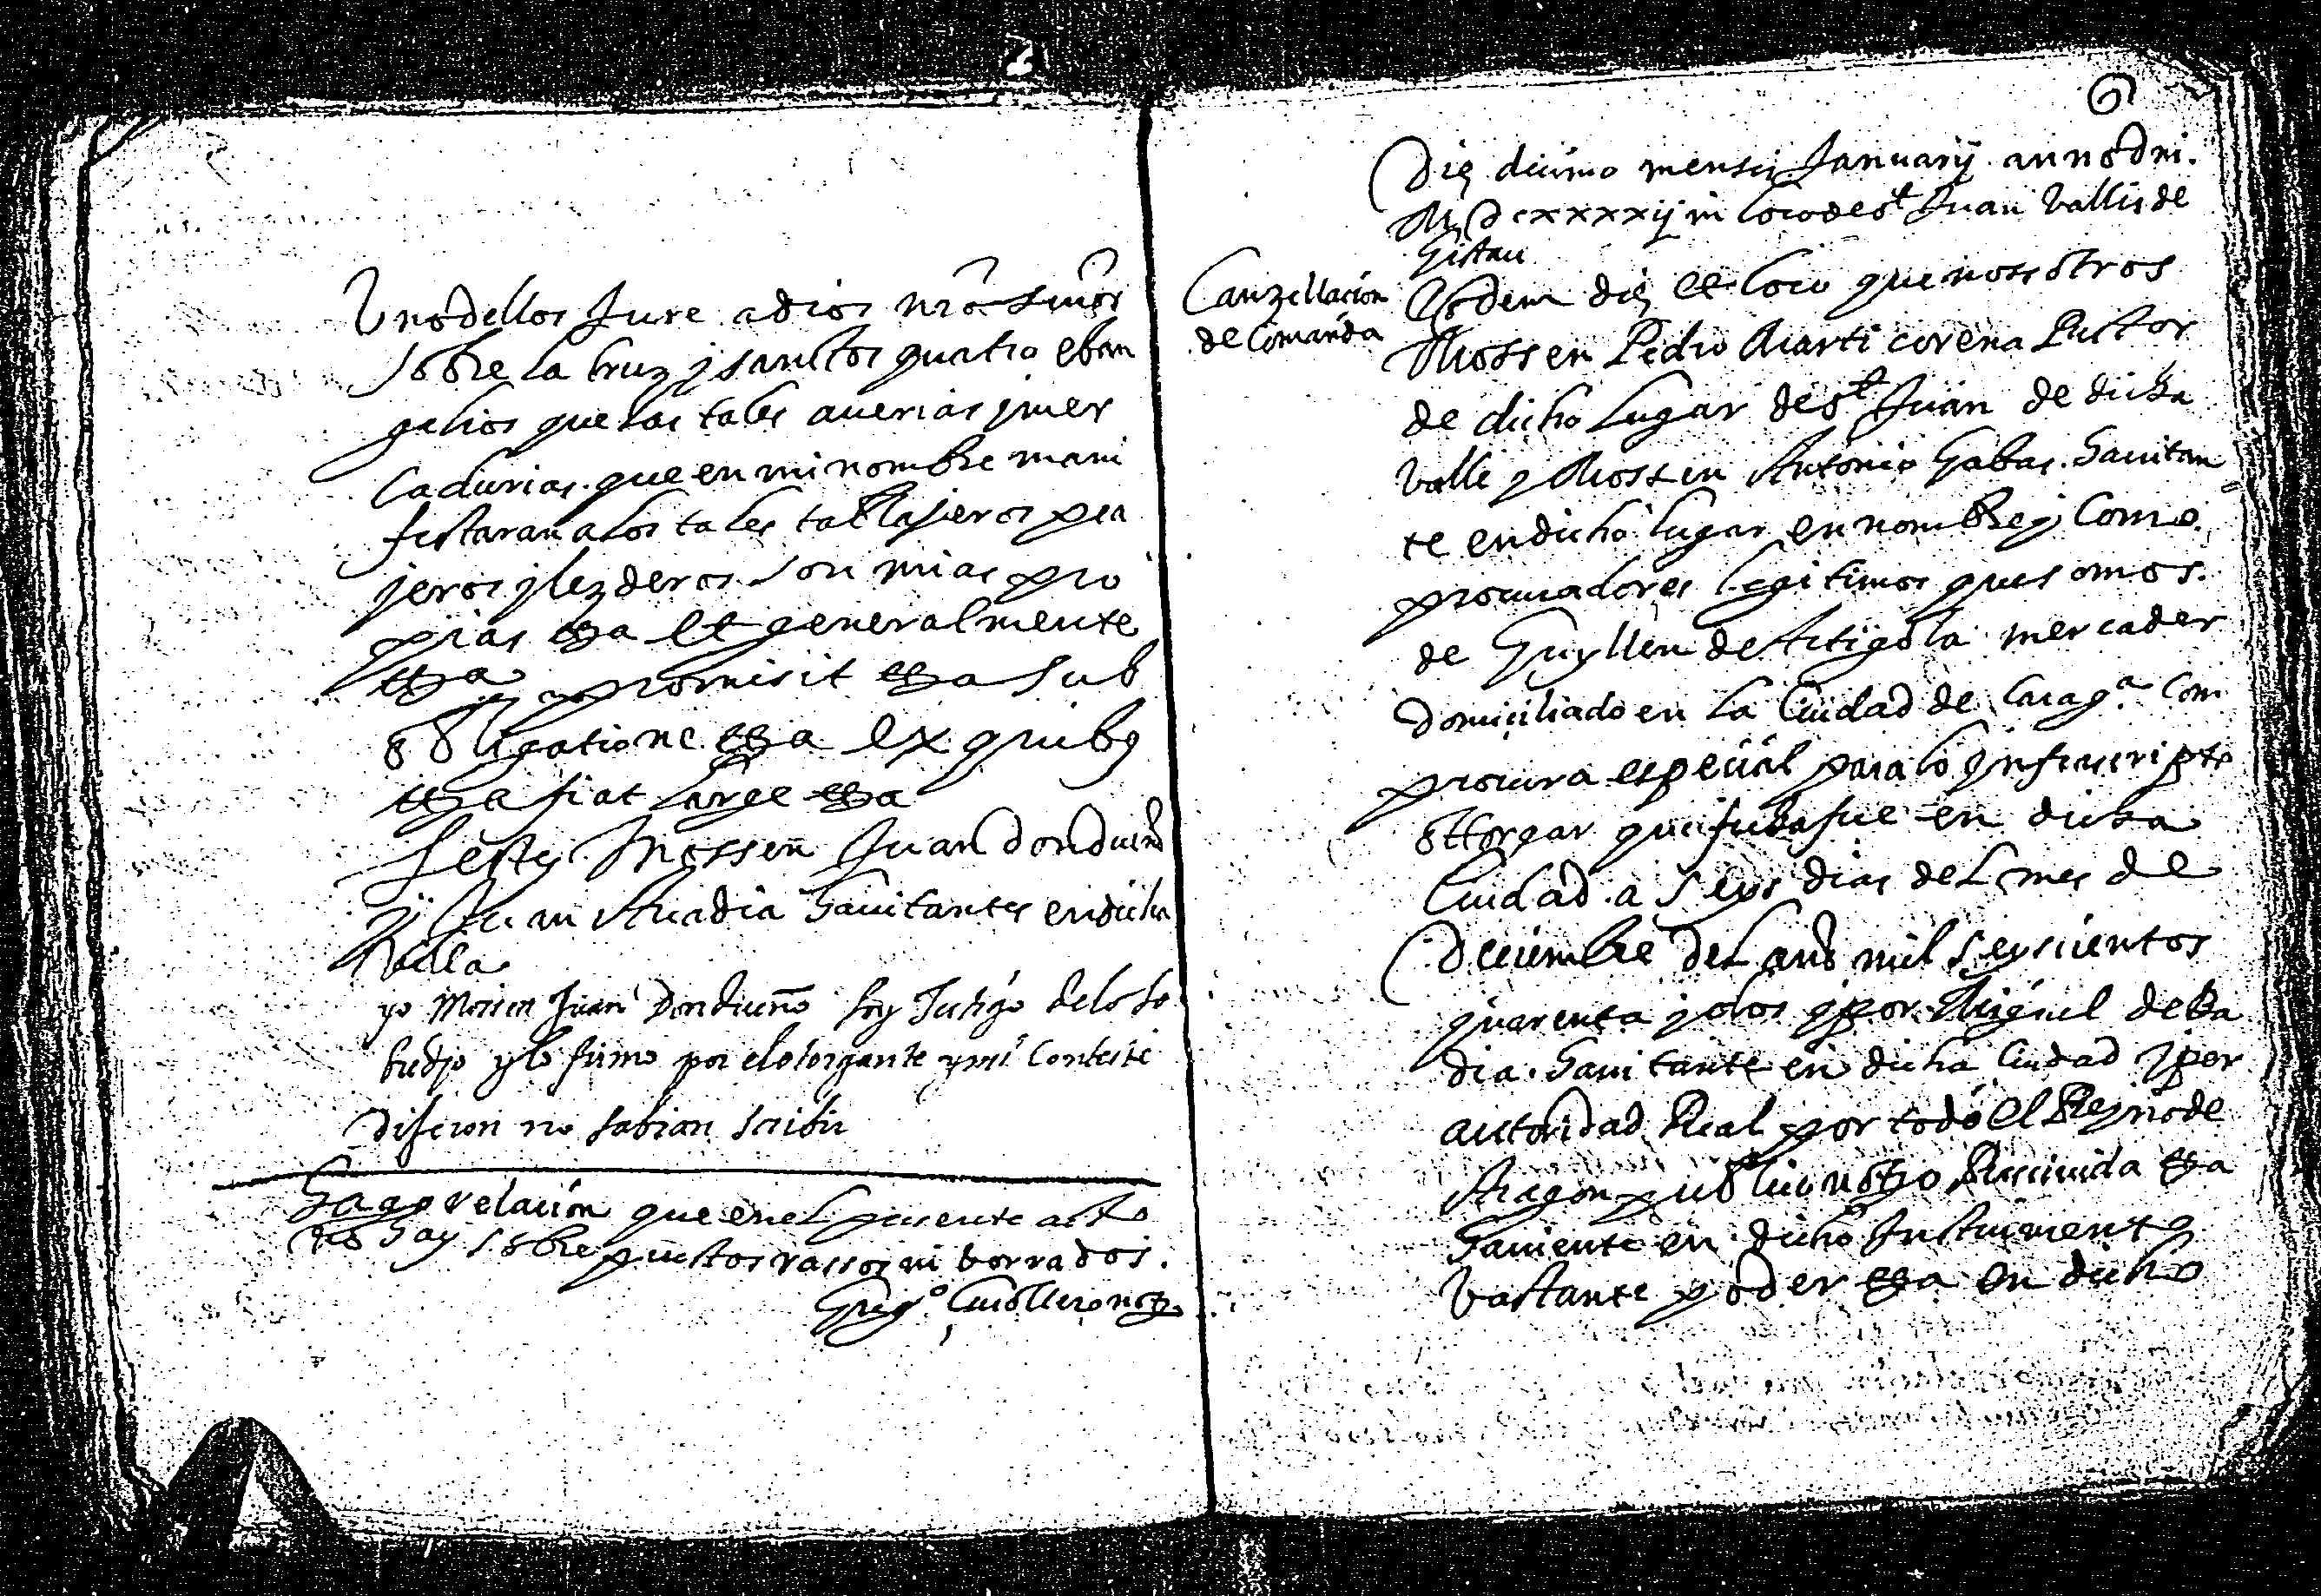 Uno dellos Jure a dios nro señor
sobre la cruz y sanctos quatro eban
gelios que las tales auerias y mer
cadurias que en mi nombre mani
festaran a los tales tablajeros pea
jeros y lezderos son mias pro
pias etza et generalmente
etza promisit etza sub
obligatione etza ex quibus
etza fiat large etza
Testes Mossen Juan Dondueño
y Juan hauitantes en dicha
villa
yo Mossen Juan Dondueño soy Testigo de lo so
bredjo y lo firmo por el otorgante y mi Conteste
dijeron no sabian scribir
Hago relacion que en el presente acto
no hay sobrepuestos rassos ni borrados.
Greg.º not.
6
Die decimo mensis Januarij anno dni.
M.DCxxxxiij in loco de St Juan Vallis de
Gistau
Canzellacion
de Comanda
Eodem die et loco que nosotros
Mossen Pedro Marti corena Rector
de dicho lugar de St Juan de dicha
valle y Mossen Antonio Gabas hauitan
te en dicho lugar en nombre y Como
procuradores legitimos que somos
de Guyllen de mercader
domiciliado en la Ciudad de Carag.ª Con
procura especial para lo infrascripto
ottorgar que fecha fue en dicha
Ciudad a seys dias del mes de
Deciembre del año mil seyscientos
quarenta y dos y por Miguel
hauitante en dicha Ciudad y por
autoridad Real por todo el Reyno de
Aragon publico notro Recevida etza
hauiente en dicho Instrumento
bastante poder etza en dicho